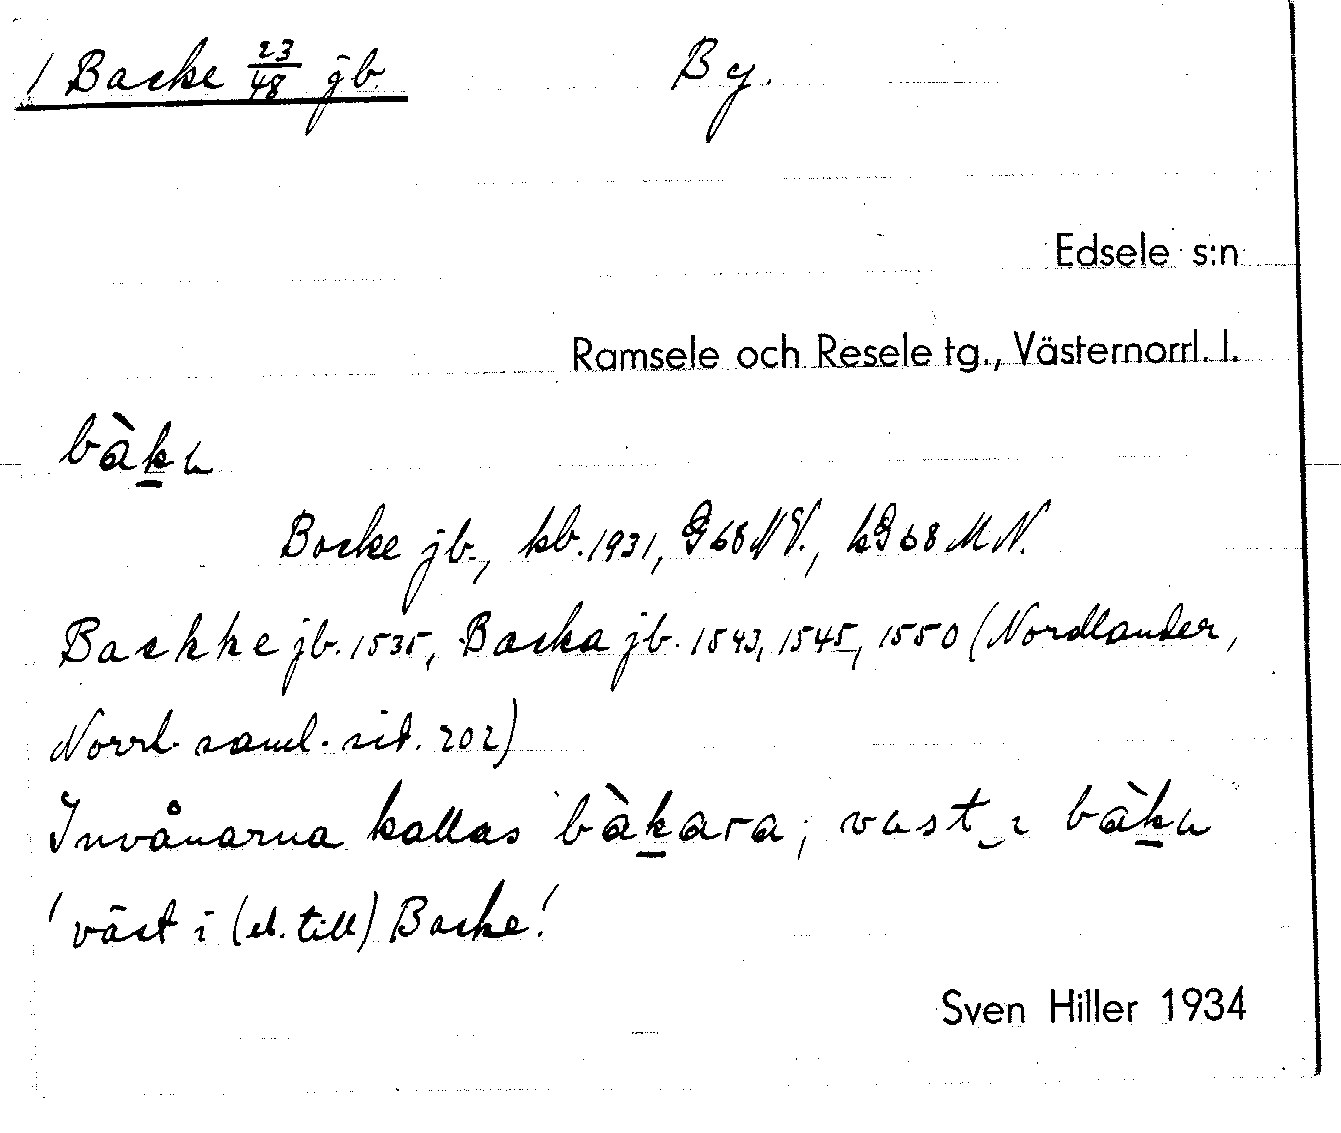 1 Backe 23/48 jb. By.
Edsele s:n
Ramsele och Resele tg., Västernorrl. l.
bàka
Backe jb., kb. 1931, G68NV., kG68MN.
Backke jb. 1535, Backa jb. 1543, 1545, 1550 (Nordlander,
Norrl. saml. sid. 202)
Invånarna kallas bàkara; vast i bàka
'väst i (el. till) Backe!
Sven Hiller 1934